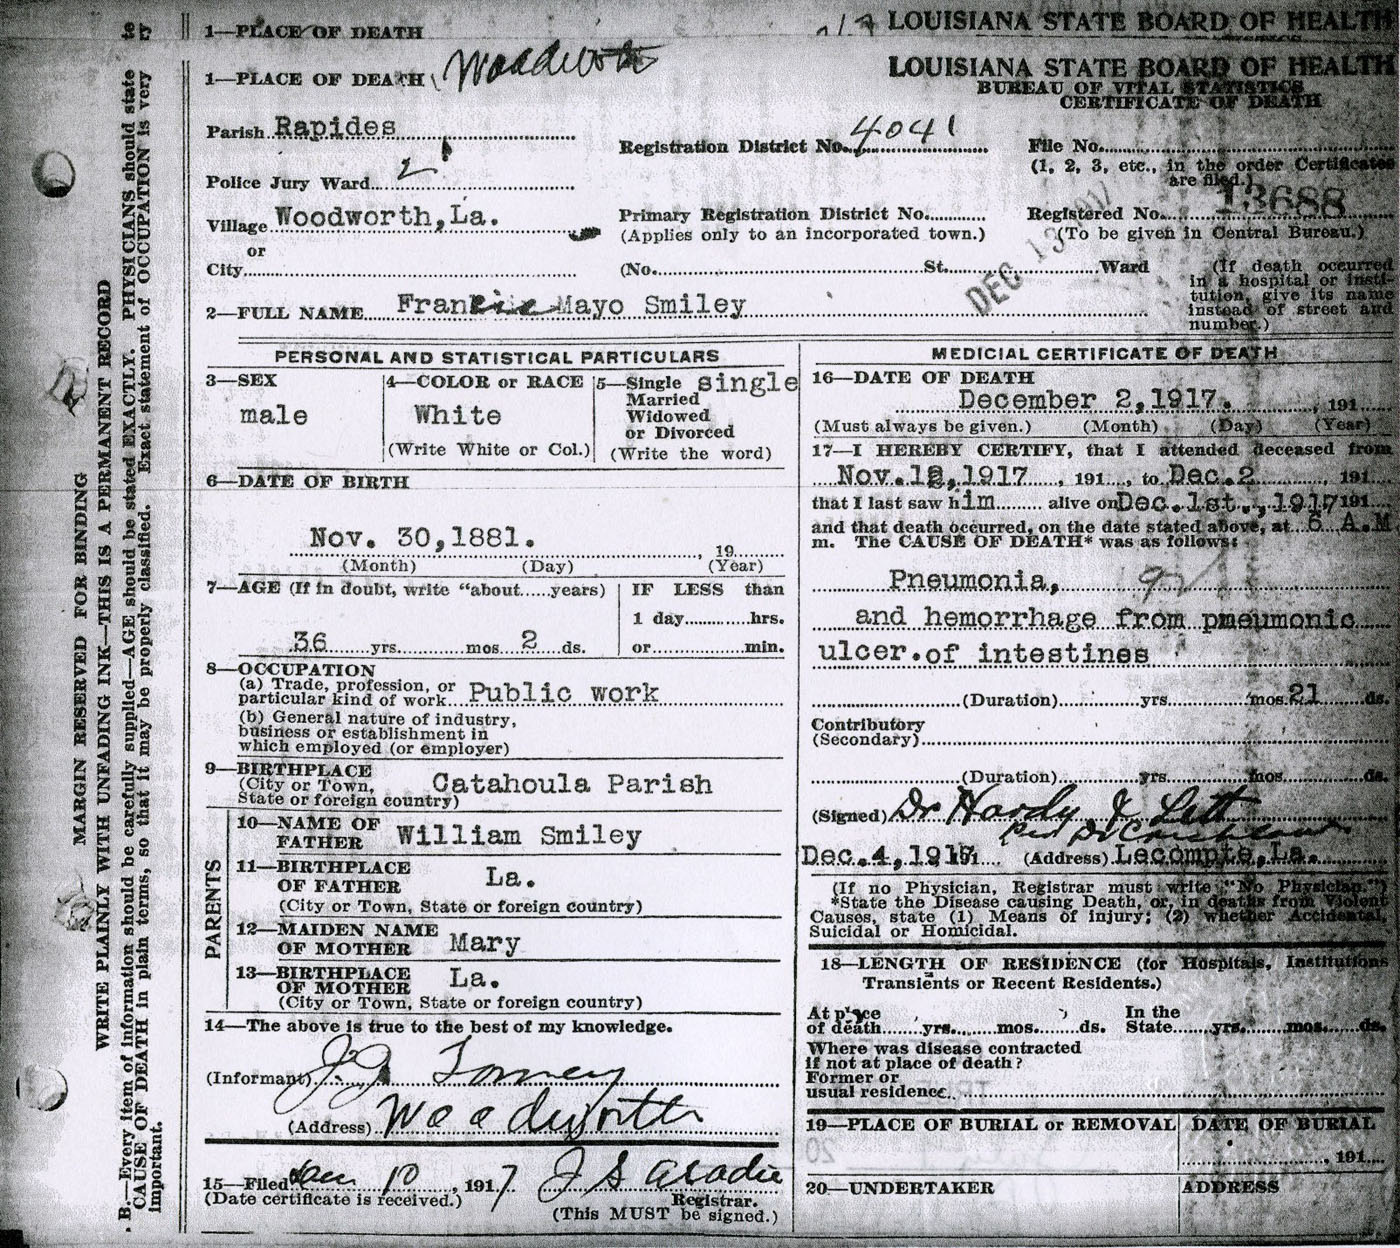 1—PLACE OF DEATH
LOUISIANA STATE BOARD OF HEALTH
1—PLACE OF DEATH Woodworth
LOUISIANA STATE BOARD OF HEALTH
BUREAU OF VITAL STATISTICS
CERTIFICATE OF DEATH
Parish Rapides
Registration District No. 4041
File No.
(1, 2, 3, etc., in the order Certificates are filed.)
Police Jury Ward 2
Village Woodworth,La.
or
City
Primary Registration District No.
(Applies only to an incorporated town.)
Registered No. 13688
(To be given in Central Bureau.)
(No. St. Ward
DEC 13
(If death occurred in a hospital or institution, give its name instead of street and number.)
2—FULL NAME Frankie Mayo Smiley
PERSONAL AND STATISTICAL PARTICULARS
3—SEX
male
4—COLOR or RACE
White
(Write White or Col.)
5—Single single
Married
Widowed
or Divorced
(Write the word)
6—DATE OF BIRTH
Nov. 30,1881. , 19
(Month) (Day) (Year)
7—AGE (If in doubt, write "about.....years)
36 yrs. mos 2 ds.
IF LESS than
1 day hrs.
or min.
8—OCCUPATION
(a) Trade, profession, or
particular kind of work Public work
(b) General nature of industry,
business or establishment in
which employed (or employer)
9—BIRTHPLACE
(City or Town,
State or foreign country) Catahoula Parish
PARENTS
10—NAME OF
FATHER William Smiley
11—BIRTHPLACE
OF FATHER La.
(City or Town, State or foreign country)
12—MAIDEN NAME
OF MOTHER Mary
13—BIRTHPLACE
OF MOTHER La.
(City or Town, State or foreign country)
14—The above is true to the best of my knowledge.
(Informant)
(Address) Woodworth
15—Filed 10 , 1917
(Date certificate is received.)
Registrar.
(This MUST be signed.)
MEDICIAL CERTIFICATE OF DEATH
16—DATE OF DEATH
December 2,1917. , 191
(Must always be given.) (Month) (Day) (Year)
17—I HEREBY CERTIFY, that I attended deceased from
Nov.12,1917 , 191 , to Dec.2 , 191
that I last saw him alive on Dec.1st.,1917 191
and that death occurred, on the date stated above, at 6 A.M
m. The CAUSE OF DEATH* was as follows:
Pneumonia,
and hemorrhage from pneumonic
ulcer.of intestines
(Duration) yrs mos 21 ds.
Contributory
(Secondary)
(Duration) yrs mos ds.
(Signed) Dr Hardy
Dec.4,1917. (Address) Lecompte,La.
(If no Physician, Registrar must write "No Physician.")
*State the Disease causing Death, or, in deaths from Violent
Causes, state (1) Means of injury; (2) whether Accidental,
Suicidal or Homicidal.
18—LENGTH OF RESIDENCE (for Hospitals, Institutions
Transients or Recent Residents.)
At place
of death yrs. mos. ds.
In the
State yrs. mos. ds.
Where was disease contracted
if not at place of death?
Former or
usual residence
19—PLACE OF BURIAL or REMOVAL
DATE OF BURIAL
, 191
20—UNDERTAKER
ADDRESS
MARGIN RESERVED FOR BINDING
WRITE PLAINLY WITH UNFADING INK—THIS IS A PERMANENT RECORD
. B.—Every item of information should be carefully supplied—AGE should be stated EXACTLY. PHYSICIANS should state
CAUSE OF DEATH in plain terms, so that it may be properly classified. Exact statement of OCCUPATION is very
important.